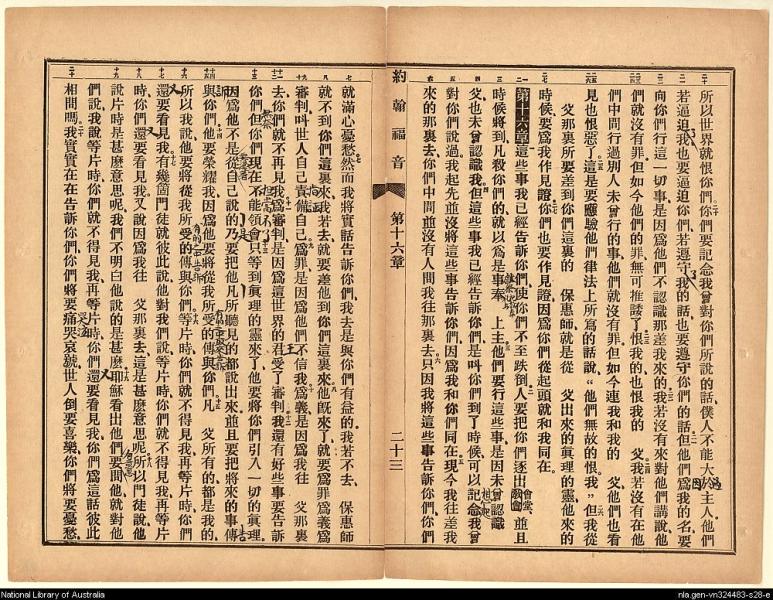 所以世界就恨你們你們要記念我曾對你們所說的話僕人不能大於主人他們
若逼迫我也要逼迫你們若遵守我的話也要遵守你們的話但他們為我的名要
向你們行這一切事是因為他們不認識那差我來的我若沒有來對他們講說他
們就沒有罪但如今他們的罪無可推諉了恨我的也恨我的 父我若沒有在他
們中間行過別人未曾行的事他們就沒有罪但如今連我和我的 父他們也看
見也恨惡了這是要應驗他們律法上所寫的話說“他們無故的恨我”但我從
父那裏所要差到你們這裏的 保惠師就是從 父出來的真理的靈他來的
時候要為我作見證你們也要作見證因為你們從起頭就和我同在
第十六章這些事我已經告訴你們使你們不至跌倒人要把你們逐出會堂並且
時候將到凡殺你們的就以為是事奉 上主他們要行這些事是因未曾認識
父也未曾認識我但這些事我已經告訴你們是叫你們到了時候可以記念我曾
對你們說過我起先並沒將這些事告訴你們因為我和你們同在現今我往差我
來的那裏去你們中間並沒有人問我往那裏去只因我將這些事告訴你們你們
約翰福音 第十六章 二十三
就滿心憂愁然而我將實話告訴你們我去是與你們有益的我若不去 保惠師
就不到你們這裏來我若去就要差他到你們這裏來他旣來了就要為罪為義為
審判叫世人自己責備自己為罪是因為他們不信我為義是因為我往 父那裏
去你們就不再見我為審判是因為這世界的君受了審判我還有好些事要告訴
你們但你們現在不能領會只等到真理的靈來了他要將你們引入一切的真理
因為他不是從自己說的乃要把他凡所聽見的都說出來並且要把將來的事傳
與你們他要榮耀我因為他要將從我所受的傳與你們凡 父所有的都是我的
所以我說他要將從我所受的傳與你們等片時你們就不得見我再等片時你們
還要看見我有幾箇門徒就彼此說他對我們說等片時你們就不得見我再等片
時你們還要看見我又說因為我往 父那裏去這是甚麼意思呢所以門徒說他
說片時是甚麼意思呢我們不明白他說的是甚麼耶穌看出他們要問他就對他
們說我說等片時你們就不得見我再等片時你們還要看見我你們為這話彼此
相問嗎我實實在在告訴你們你們將要痛哭哀號世人倒要喜樂你們將要憂愁
National Library of Australia
nla.gen-vn324483-s28-e